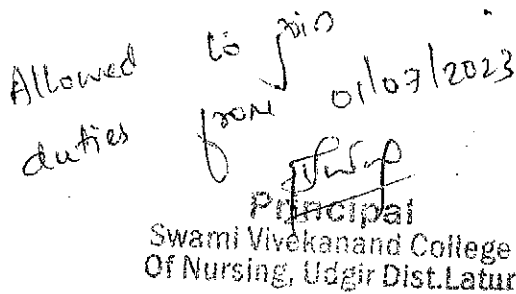 Allowed to join
duties from 01/07/2023
Principal
Swami Vivekanand College
Of Nursing, Udgir Dist.Latur